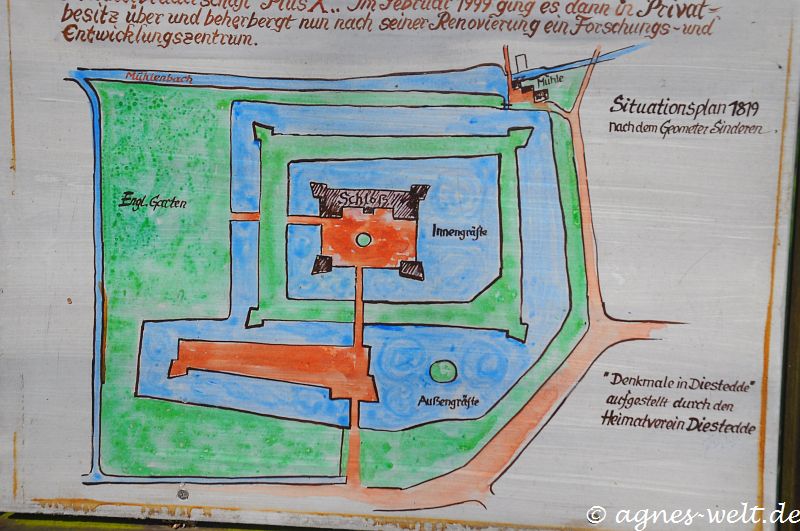 Plus X.. Im Februar 1999 ging es dann in Privat=
besitz über und beherbergt nun nach seiner Renovierung ein Forschungs- und
Entwicklungszentrum.
Mühlenbach
Mühle
Situationsplan 1819
nach dem Geometer Sinderen.
Engl. Garten
Schloß
Innengräfte
Außengräfte
"Denkmale in Diestedde"
aufgestellt durch den
Heimatverein Diestedde
© agnes-welt.de